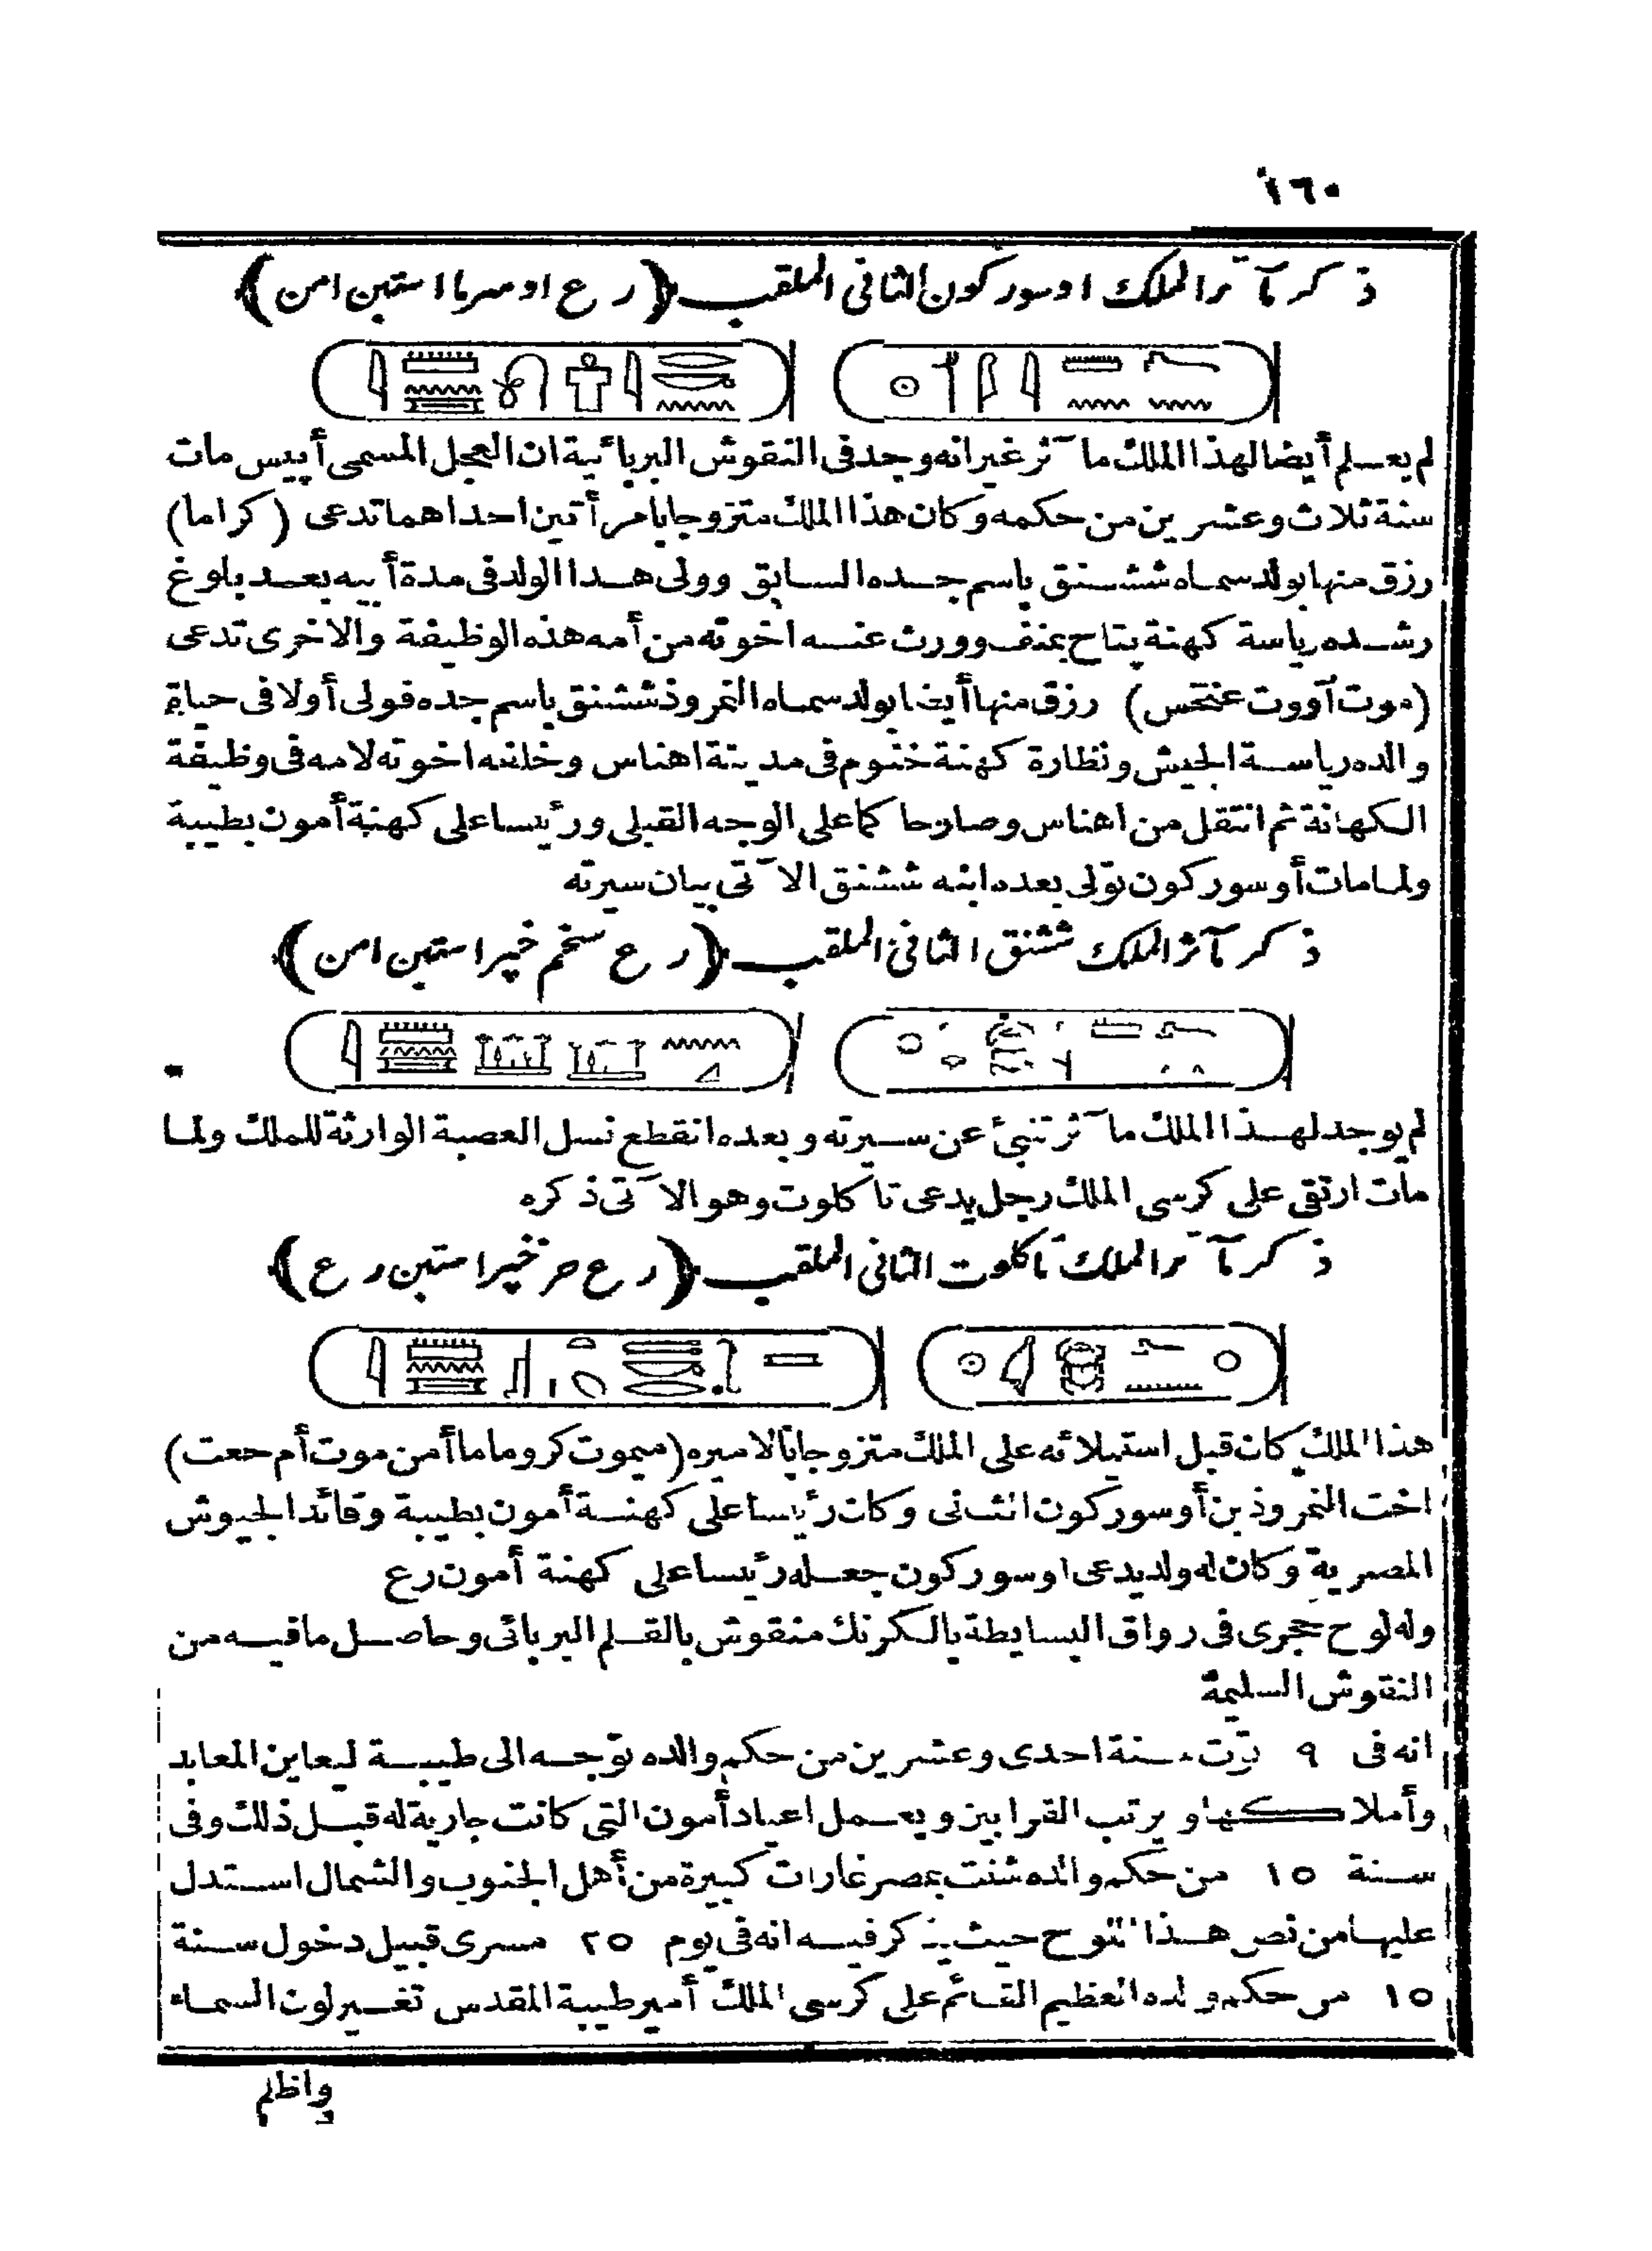 ١٦٠
ذكر مآثر الملك اوسوركون الثانى الملقب ﴿رع اوسرما استبن امن﴾
لم يعلم أيضا لهذا الملك مآثر غير انه وجد فى النقوش البربائية ان العجل المسمى أبيس مات
سنة ثلاث وعشرين من حكمه وكان هذا الملك متزوجا بامرأتين احداهما تدعى (كراما)
رزق منها بولد سماه ششنق باسم جده السابق وولى هذا الولد فى مدة أبيه بعد بلوغ
رشده رياسة كهنة بتاح بمنف وورث عنه اخوته من أمه هذه الوظيفة والاخرى تدعى
(موت آووت عنخس) رزق منها أيضا بولد سماه النمروذ ششنق باسم جده فولى أولا فى حياة
والده رياسة الجيش ونظارة كهنة خنوم فى مدينة اهناس وخلفه اخوته لامه فى وظيفة
الكهانة ثم انتقل من اهناس وصار حاكما على الوجه القبلى ورئيسا على كهنة أمون بطيبة
ولما مات أوسوركون تولى بعده ابنه ششنق الآتى بيان سيرته
ذكر مآثر الملك ششنق الثانى الملقب ﴿رع سخم خبر استبن امن﴾
لم يوجد لهذا الملك مآثر تنبئ عن سيرته وبعده انقطع نسل العصبة الوارثة للملك ولما
مات ارتقى على كرسى الملك رجل يدعى تاكلوت وهو الآتى ذكره
ذكر مآثر الملك تاكلوت الثانى الملقب ﴿رع حز خبر استبن رع﴾
هذا الملك كان قبل استيلائه على الملك متزوجا بالاميره (ميموت كروماما أمن موت أم حعت)
اخت النمروذ بن أوسوركون الثانى وكان رئيسا على كهنة أمون بطيبة وقائد الجيوش
المصرية وكان له ولد يدعى اوسوركون جعله رئيسا على كهنة أمون رع
وله لوح حجرى فى رواق البسايطة بالكرنك منقوش بالقلم البربائى وحاصل مافيه من
النقوش السليمة
انه فى ٩ توت سنة احدى وعشرين من حكم والده توجه الى طيبة ليعاين المعابد
وأملاكها ويرتب القرابين ويعمل اعياد أمون التى كانت جارية له قبل ذلك وفى
سنة ١٥ من حكم والده شنت بمصر غارات كبيرة من أهل الجنوب والشمال استدل
عليها من نص هذا اللوح حيث ذكر فيه انه فى يوم ٢٥ مسرى قبيل دخول سنة
١٥ من حكم والده العظيم القائم على كرسى الملك أمير طيبة المقدس تغير لون السماء
واظلم